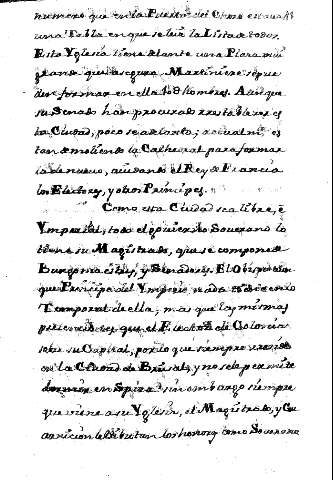 numero que en la Puerta del Clime estava
una Tabla en que se leia la Lista de todos.
Esta Yglesia tiene delante una Plaza mui
grande que asegura Martiniere se pue
den formar en ella hombres. Aunque
su Senado han procurado restablecer es
ta Ciudad, poco se adelanto; actualmte es
tan demoliendo la Cathedral para formar
la de nuevo, aiudando el Rey de Francia
los Electores, y otros Principes.
Como esta Ciudad sea libre, é
Ymperial, todo el govierno Soverano lo
tiene su Magistrado, que se compone de
Burgomaestres, y Senadores. El Obispo aun
que Principe del Ymperio nada tiene en lo
Temporal de ella, mas que las mismas
preeminencias que el Elector de Colonia
sobre su Capital, por lo que siempre reside
en la Ciudad de Brusal, y no se le permite
dormir en Spira: sin embargo siempre
que viene a su Yglesia, el Magistrado, y Gu
arnicion le tributan los honores como Soverano